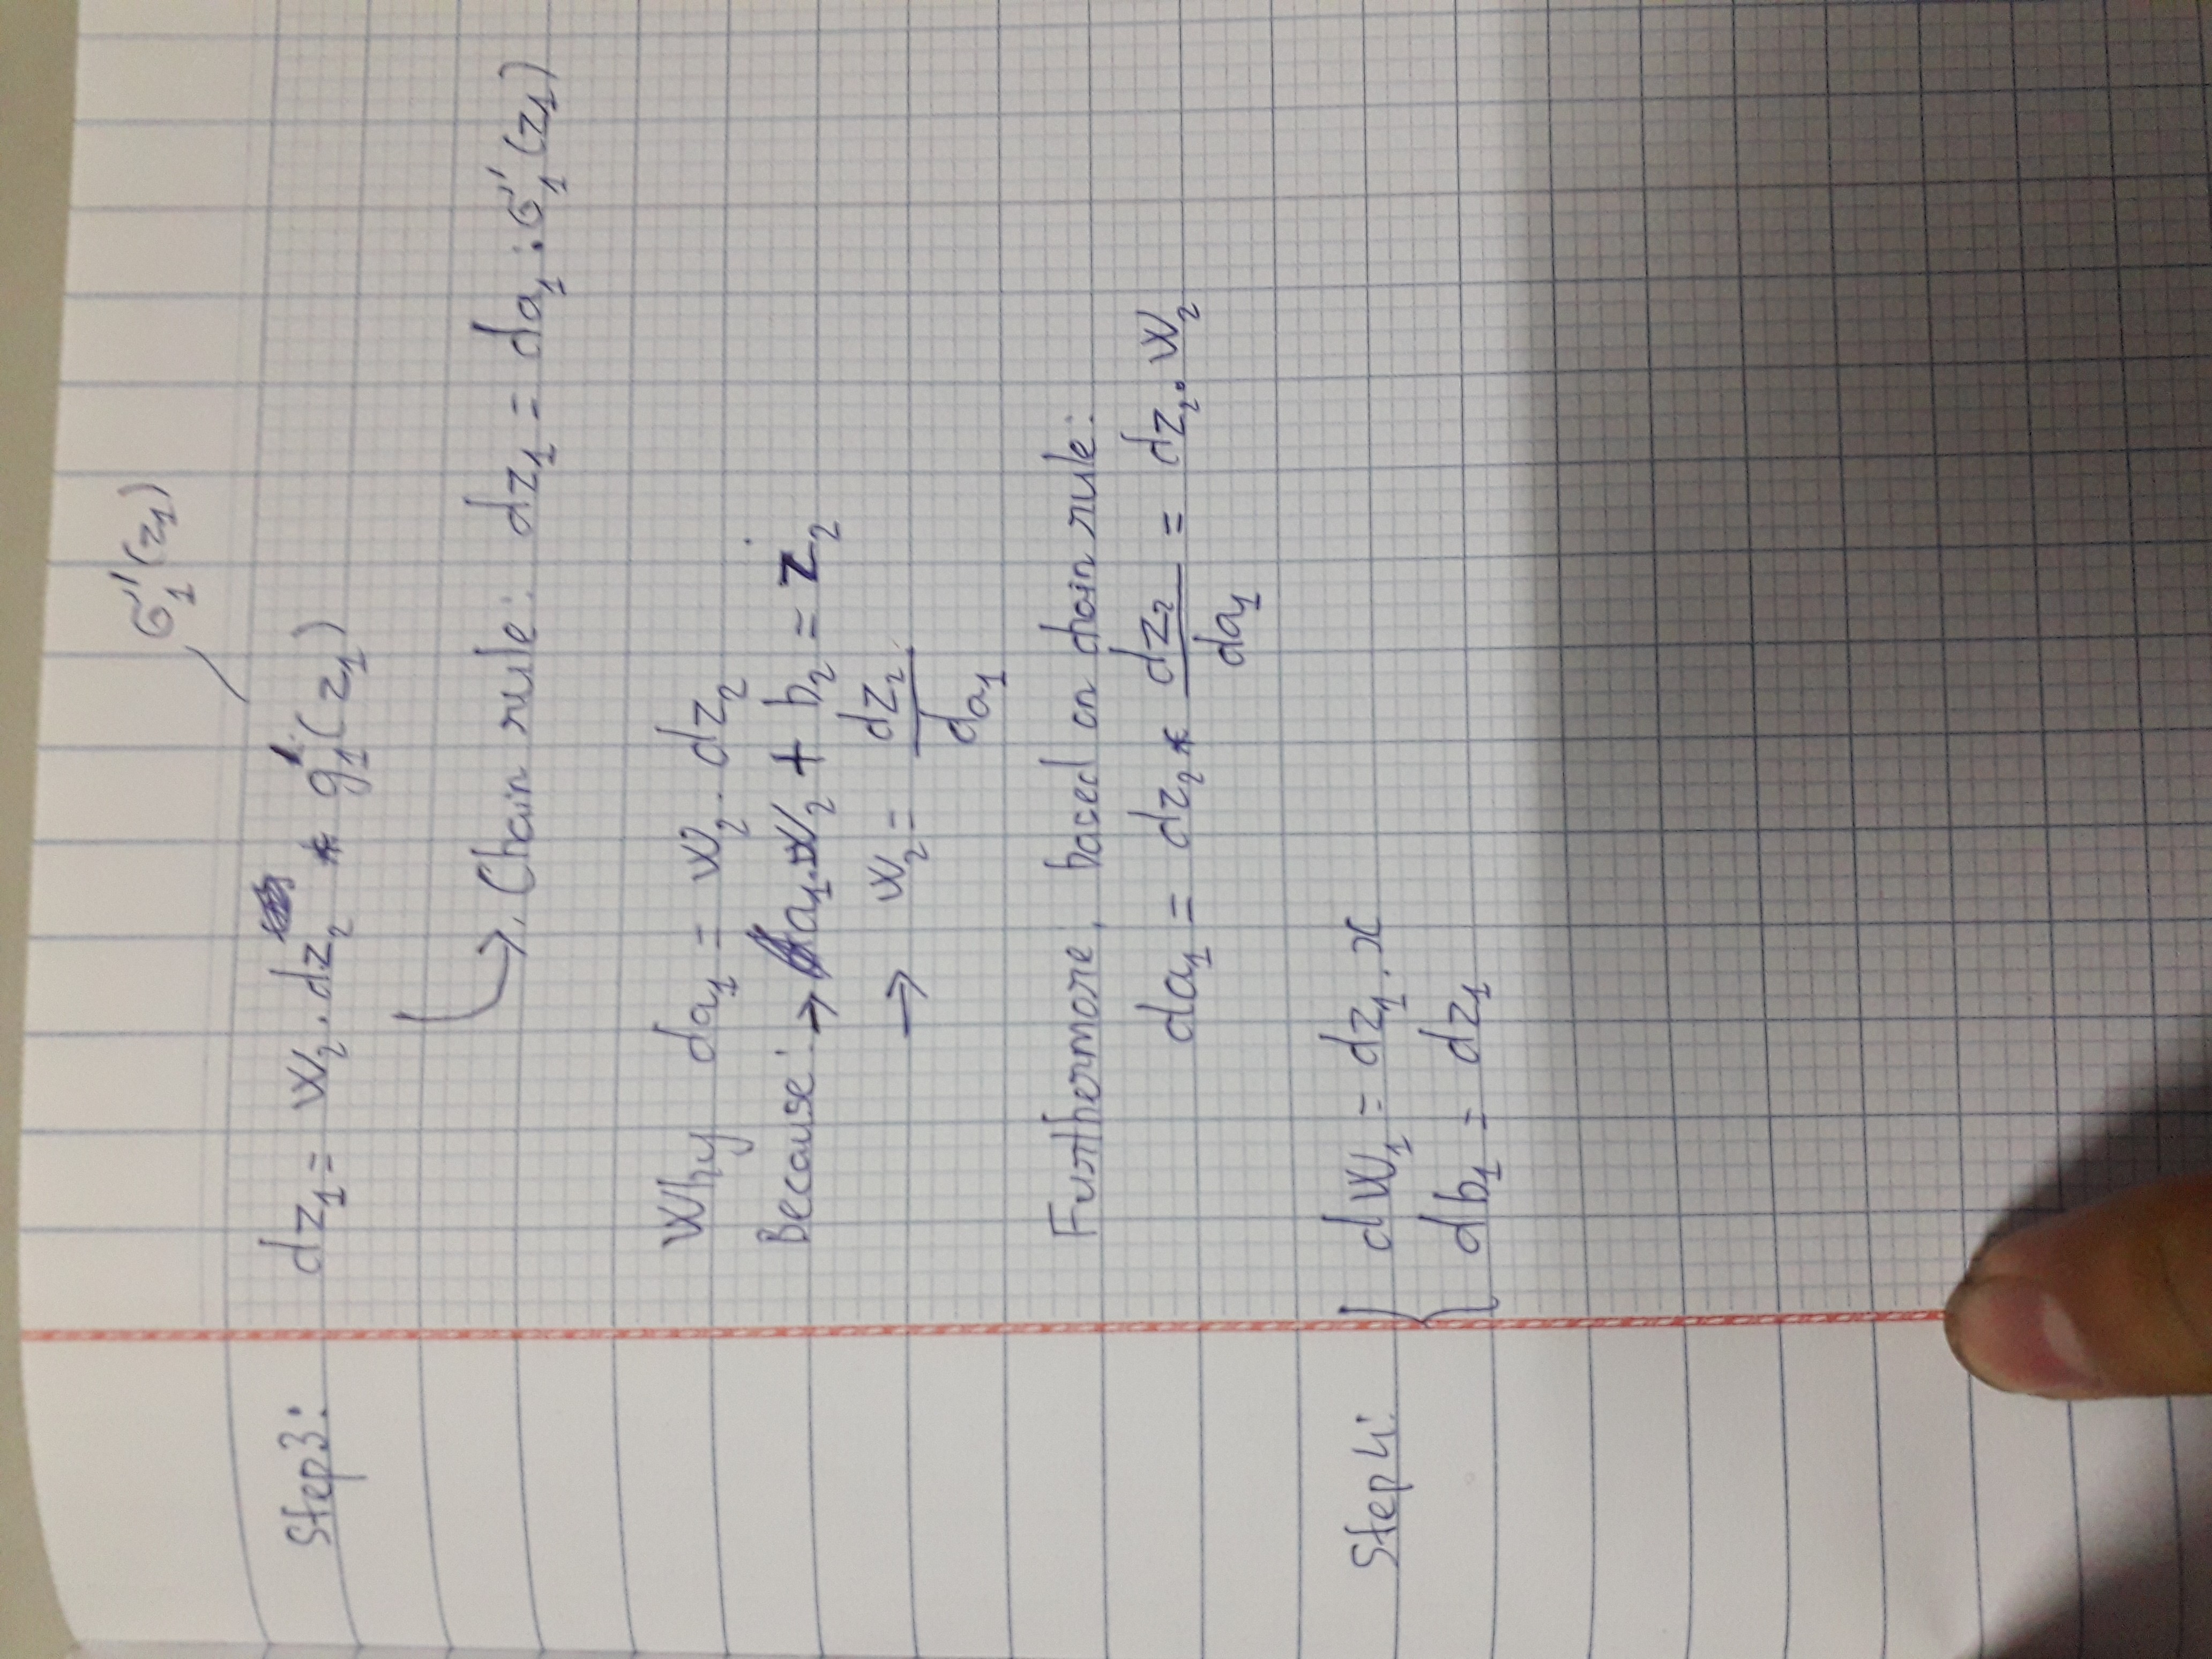 σ₁'(z₁)
Step3: dz₁ = W₂ . dz₂ * g₁'(z₁)
→ Chain rule: dz₁ = da₁ . σ₁'(z₁)
Why da₁ = W₂ . dz₂
Because: → a₁.W₂ + b₂ = z₂
→ W₂ = dz₂ / da₁
Furthermore, based on chain rule:
da₁ = dz₂ * dz₂ / da₁ = dz₂ . W₂
Step4: { dW₁ = dz₁ . x
db₁ = dz₁